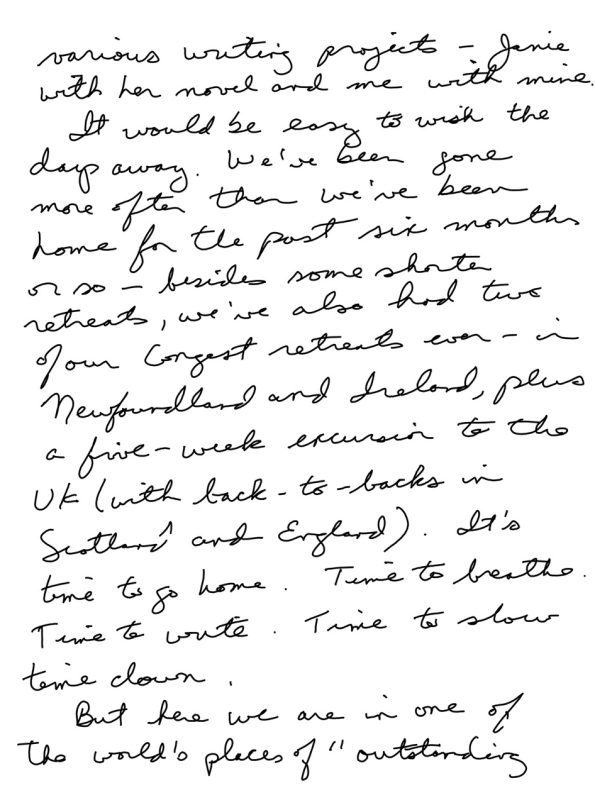 various writing projects – Janie
with her novel and me with mine.
It would be easy to wish the
days away. We've been gone
more often than we've been
home for the past six months
or so – besides some shorter
retreats, we've also had two
of our longest retreats ever – in
Newfoundland and Ireland, plus
a five-week excursion to the
UK (with back-to-backs in
Scotland and England). It's
time to go home. Time to breathe.
Time to write. Time to slow
time down.
But here we are in one of
the world's places of "outstanding